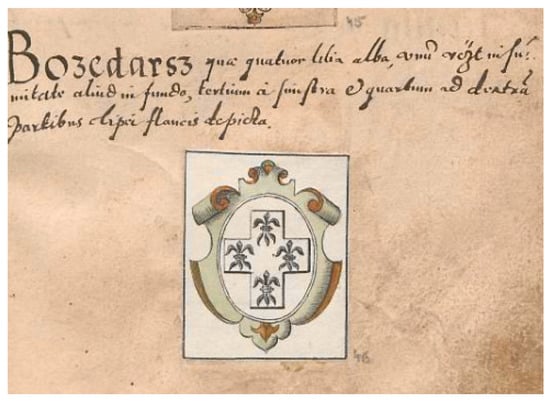 45
Bozedarsz quæ quatuor lilia alba, unũ
mitate aliud in fundo, tertium à sinistra & quartum ad dextrã
partibus clipei flancis depicta.
46